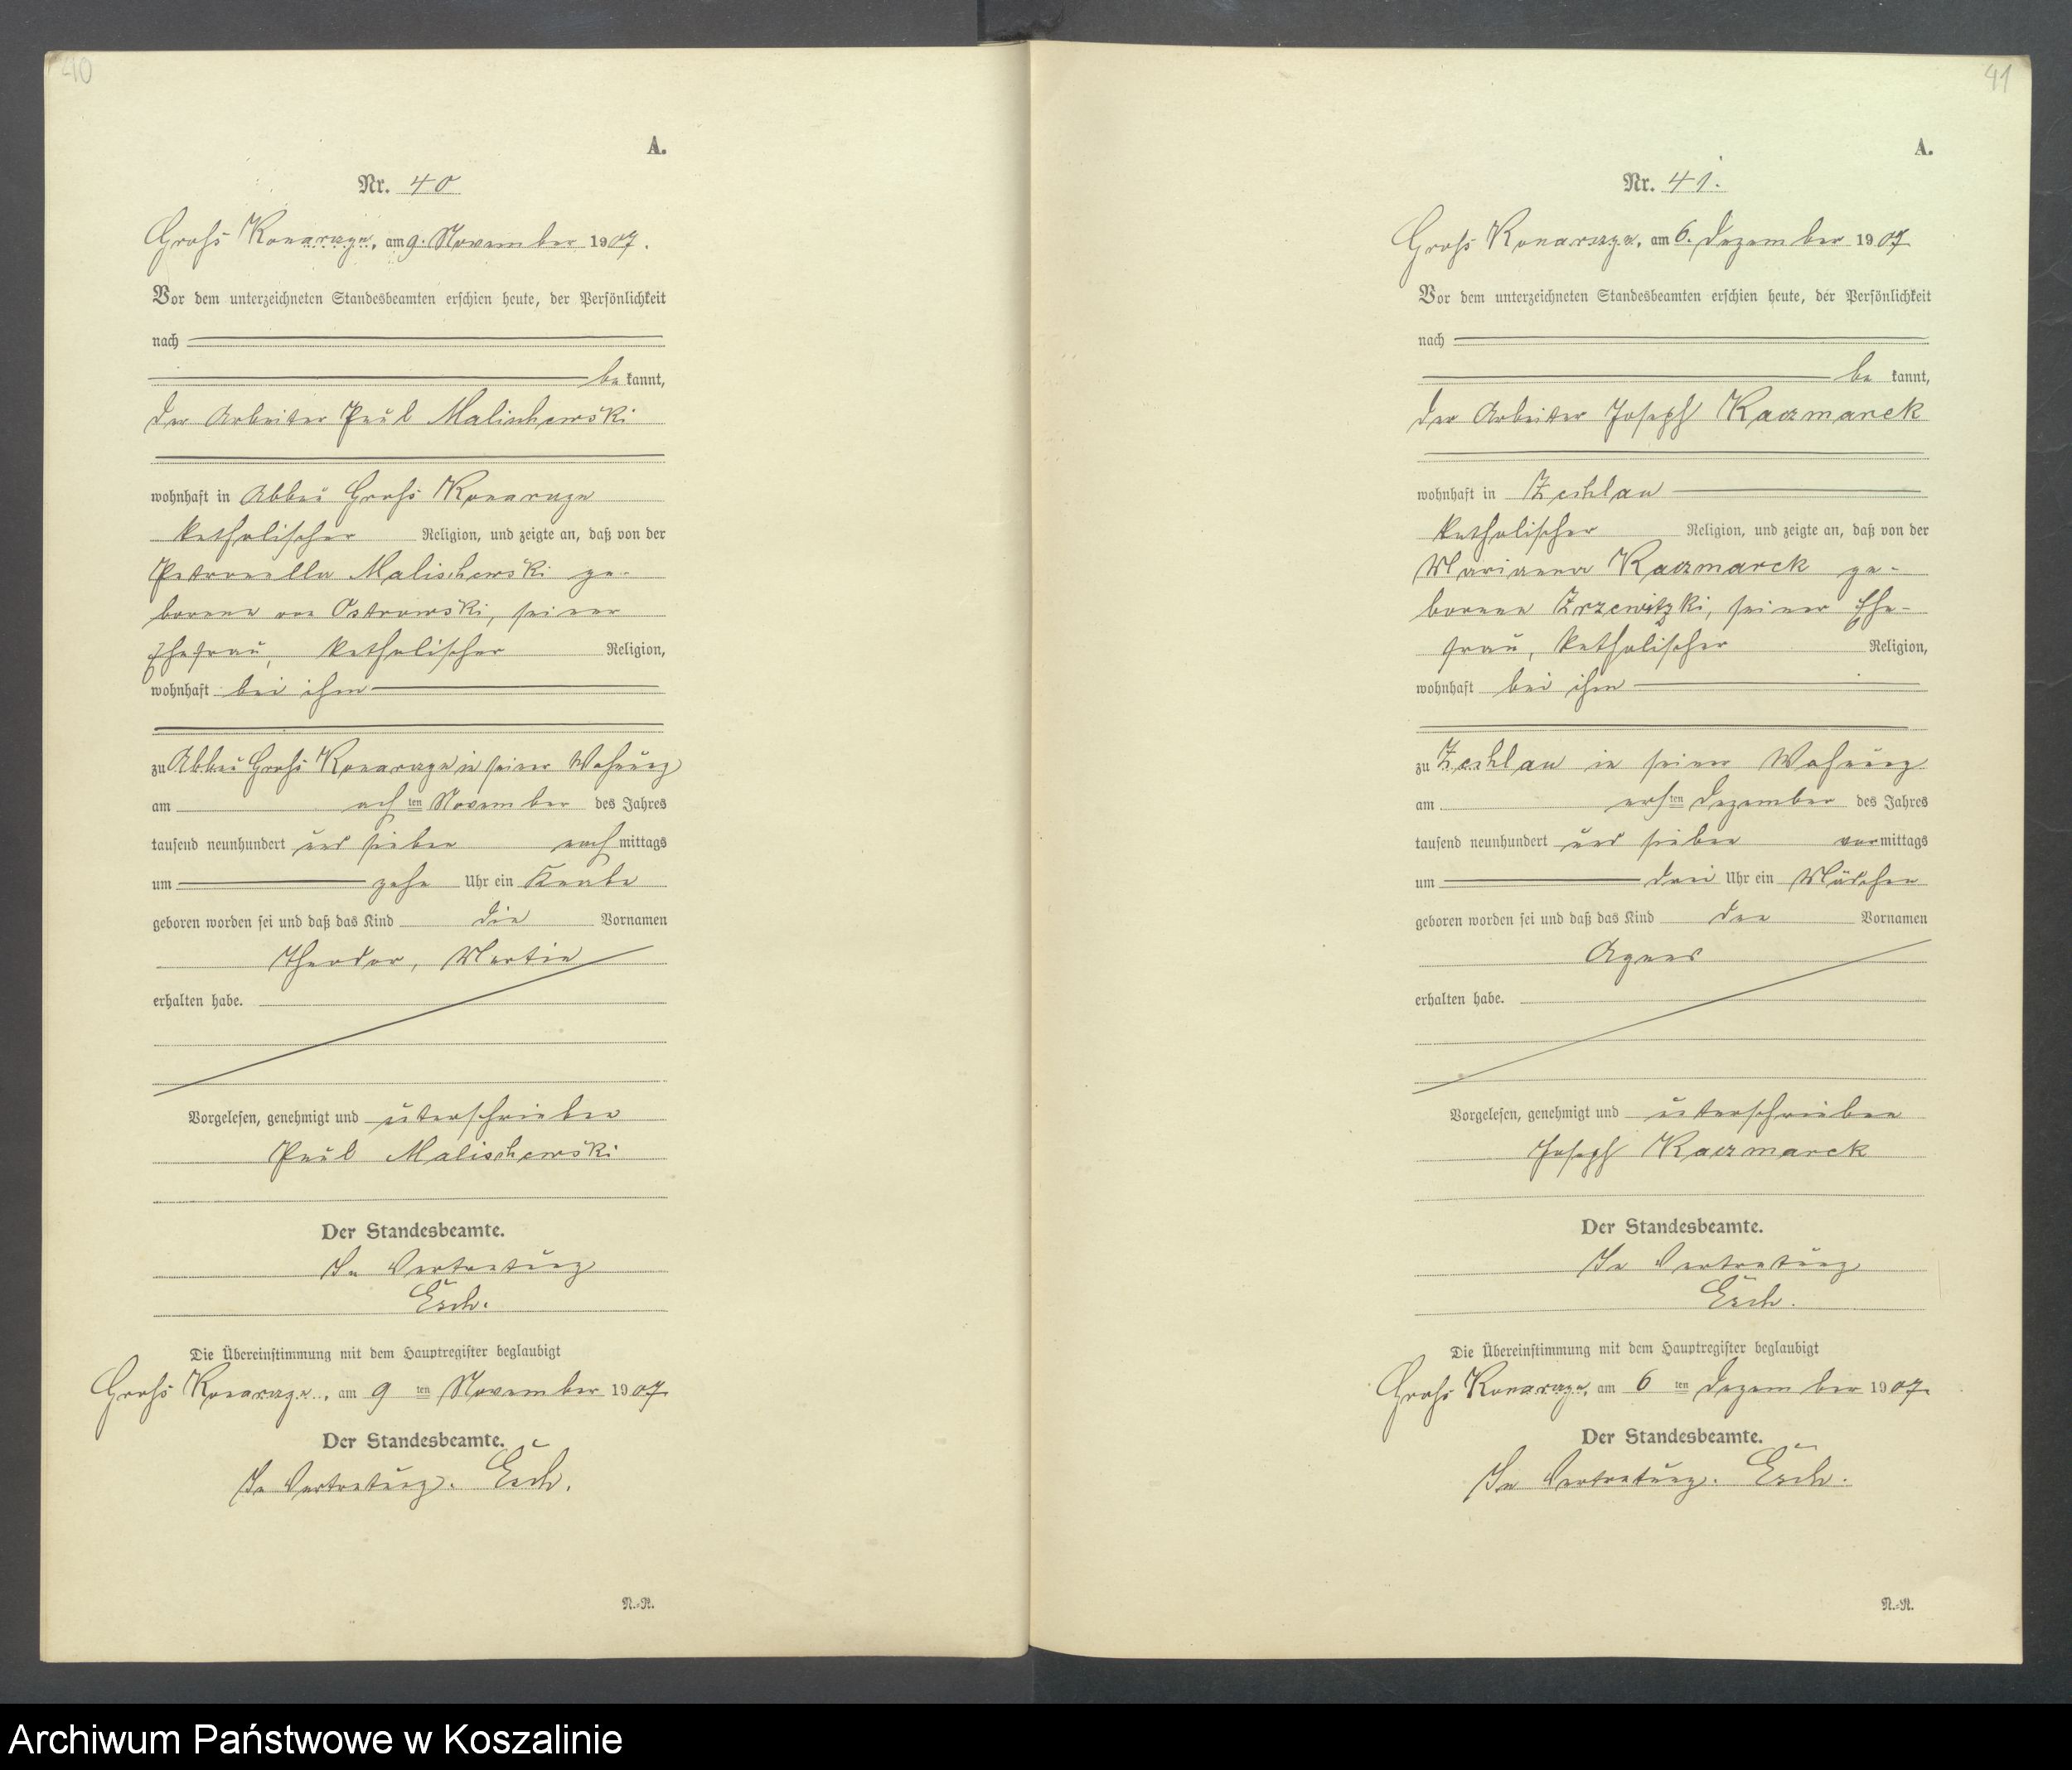 40
A.
Nr. 40
Gross Konarczyn, am 9. November 1907.
Vor dem unterzeichneten Standesbeamten erschien heute, der Persönlichkeit
nach
be kannt,
der Arbeiter Paul Malischewski
wohnhaft in Abbau Gross Konarczyn
katholischer Religion, und zeigte an, daß von der
Petronella Malischewski ge-
borene von Ostrowski, seiner
Ehefrau, katholischer Religion,
wohnhaft bei ihm
zu Abbau Gross Konarczyn in seiner Wohnung
am achten November des Jahres
tausend neunhundert und sieben nach mittags
um zehn Uhr ein Knabe
geboren worden sei und daß das Kind die Vornamen
Theodor, Martin
erhalten habe.
Vorgelesen, genehmigt und unterschrieben
Paul Malischewski
Der Standesbeamte.
In Vertretung
Esch.
Die Übereinstimmung mit dem Hauptregister beglaubigt
Gross Konarczyn, am 9 ten November 1907.
Der Standesbeamte.
In Vertretung. Esch.
N.-R.
41
A.
Nr. 41.
Gross Konarczyn, am 6. Dezember 1907
Vor dem unterzeichneten Standesbeamten erschien heute, der Persönlichkeit
nach
be kannt,
der Arbeiter Joseph Kaczmarek
wohnhaft in Zechlau
katholischer Religion, und zeigte an, daß von der
Marianna Kaczmarek ge-
borene Zrzewitzki, seiner Ehe-
frau, katholischer Religion,
wohnhaft bei ihm
zu Zechlau in seiner Wohnung
am ersten Dezember des Jahres
tausend neunhundert und sieben vormittags
um drei Uhr ein Mädchen
geboren worden sei und daß das Kind den Vornamen
Agnes
erhalten habe.
Vorgelesen, genehmigt und unterschrieben
Joseph Kaczmarek
Der Standesbeamte.
In Vertretung
Esch.
Die Übereinstimmung mit dem Hauptregister beglaubigt
Gross Konarczyn, am 6 ten Dezember 1907.
Der Standesbeamte.
In Vertretung. Esch.
N.-R.
Archiwum Państwowe w Koszalinie